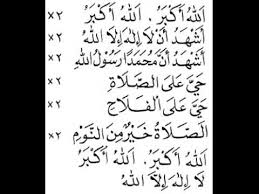 اَللّٰهُ أَكْبَرُ . اَللّٰهُ أَكْبَرُ x٢
أَشْهَدُ أَنْ لَا إِلٰهَ إِلَّا اللّٰهُ x٢
أَشْهَدُ أَنَّ مُحَمَّدًا رَسُوْلُ اللّٰهِ x٢
حَيَّ عَلَى الصَّلَاةِ x٢
حَيَّ عَلَى الْفَلَاحِ x٢
اَلصَّلَاةُ خَيْرٌ مِنَ النَّوْمِ x٢
اَللّٰهُ أَكْبَرُ . اَللّٰهُ أَكْبَرُ
لَا إِلٰهَ إِلَّا اللّٰهُ